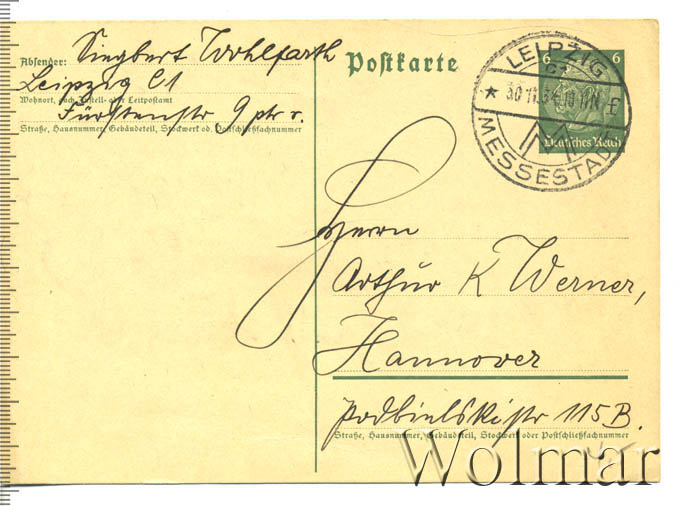 Absender: Siegbert Wohlfarth
Leipzig C1
Wohnort, auch Zustell- oder Leitpostamt
Fürstenstr. 9 ptr. r.
Straße, Hausnummer, Gebäudeteil, Stockwerk od. Postschließfachnummer
Postkarte
6 6
Deutsches Reich
LEIPZIG
C2
30.11.34.10-11N
MESSESTADT
Herrn
Arthur K Werner,
Hannover
Podbielskistr 115B.
Straße, Hausnummer, Gebäudeteil, Stockwerk oder Postschließfachnummer
Wolmar